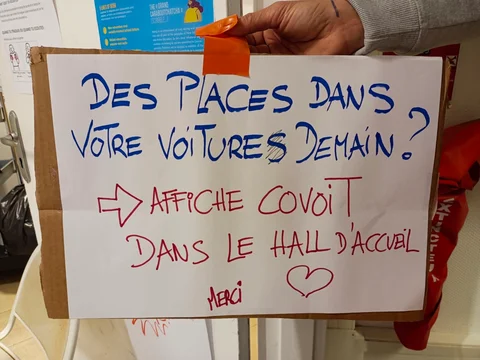 DES PLACES DANS
VOTRE VOITURE DEMAIN?
⇨ AFFICHE COVOIT
DANS LE HALL D'ACCUEIL
♡
MERCI